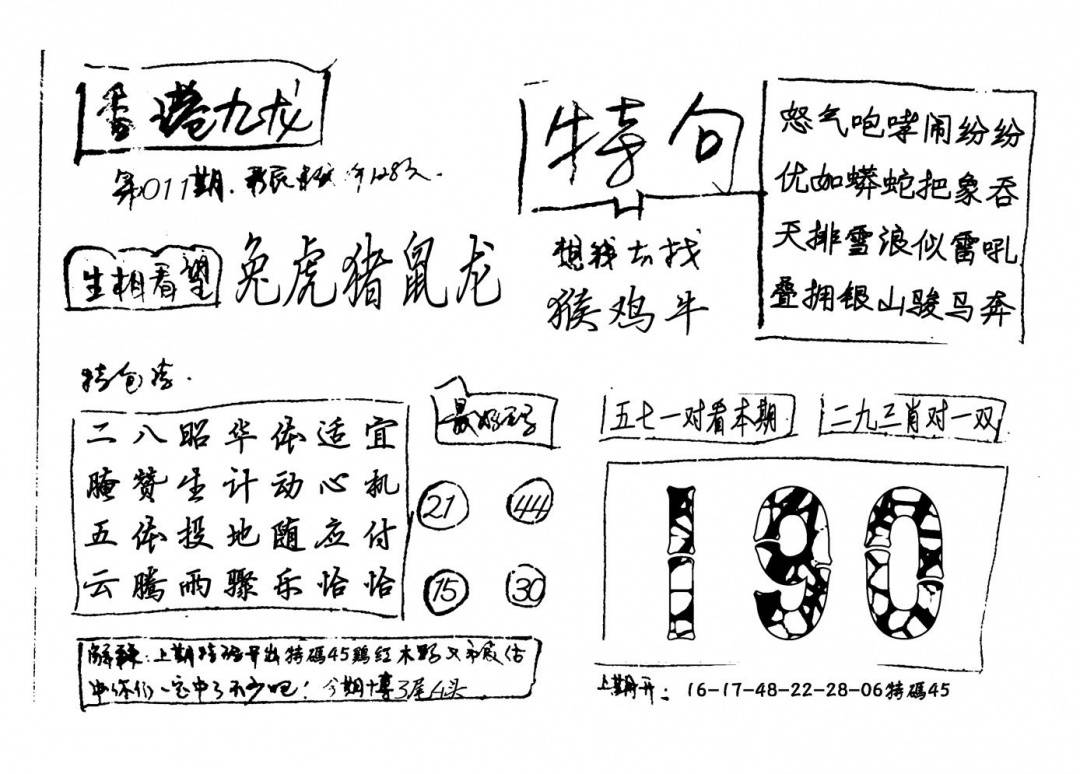 香港九龙
第011期.
生相看望
兔虎猪鼠龙
特句
想我去找
猴鸡牛
怒气咆哮闹纷纷
优如蟒蛇把象吞
天排雪浪似雷吼
叠拥银山骏马奔
特包诗.
二八昭华依适宜
腌赞生计动心机
五体投地随应付
云腾雨骤乐恰恰
21 44
15 30
五七一对看本期
二九三肖对一双
190
解释:上期特码开出特碼45鷄红木野又
中你们一定中了不少吧! 今期博3尾4头
上期开: 16-17-48-22-28-06特碼45